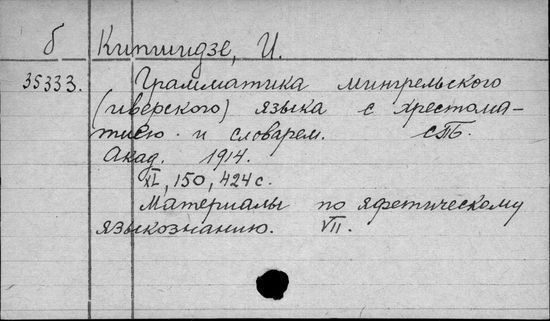 б Кипшидзе, И.
35333. Грамматика мингрельского
(иверского) языка с хрестома-
тиею и словарем. СПб.
Акад. 1914.
XI, 150, 424 с.
Материалы по яфетическому
языкознанию. VII.